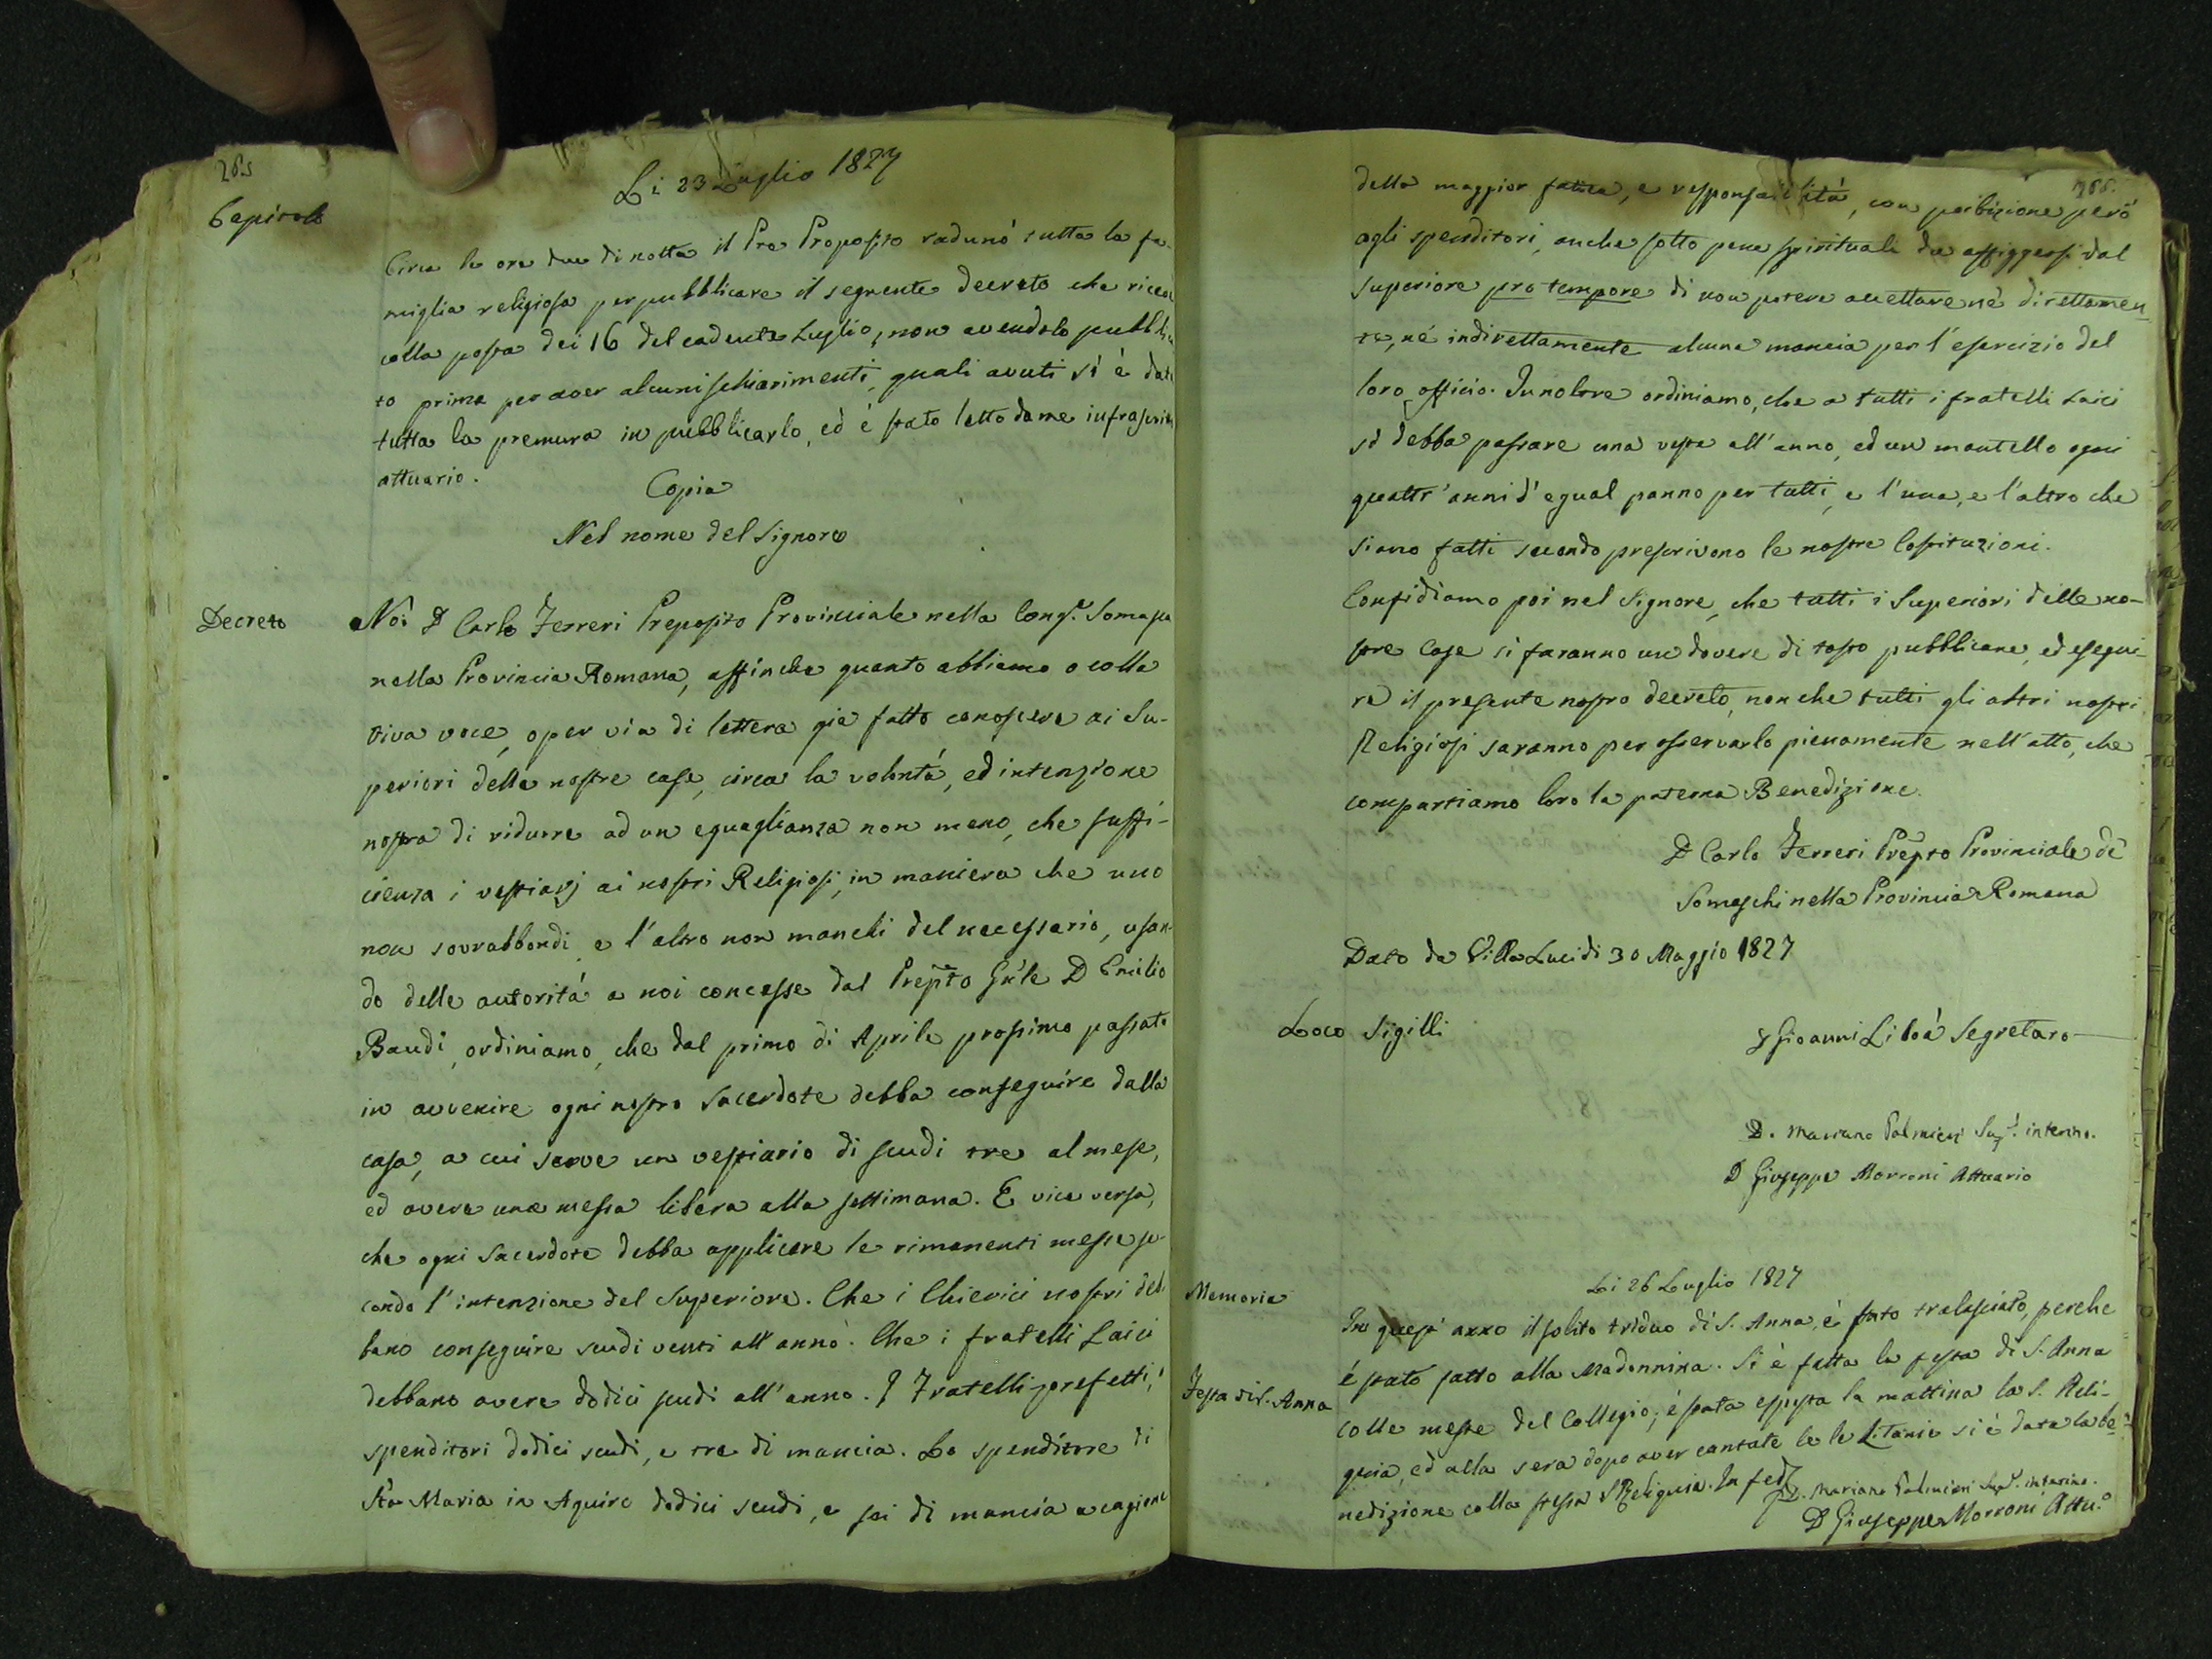 265
Li 23 Luglio 1827
Capitolo
Circa le ore due di notte il Pre Proposito radunò tutta la fa-
miglia religiosa per pubblicare il seguente decreto che ricev
colla posta dei 16 del cadente Luglio, non avendolo pubblica
to prima per aver alcuni schiarimenti, quali avuti si è data
tutta la premura in pubblicarlo, ed è stato letto da me infrascritto
attuario.
Copia
Nel nome del Signore
Decreto
Noi D Carlo Ferreri Preposito Provinciale nella Cong.e Somasca
nella Provincia Romana, affinche quanto abbiamo o colla
viva voce, o per via di lettera già fatto conoscere ai Su-
periori delle nostre case, circa la volontà, ed intenzione
nostra di ridurre ad un eguaglianza non meno, che suffi-
cienza i vestiarj ai nostri Religiosi, in maniera che uno
non sovrabbondi, e l'altro non manchi del necessario, usan-
do delle autorità a noi concesse dal Prepto Gnle D Emilio
Baudi, ordiniamo, che dal primo di Aprile prossimo passato
in avvenire ogni nostro Sacerdote debba conseguire dalla
casa, a cui serve un vestiario di scudi tre al mese,
ed avere una messa libera alla settimana. E vice versa,
che ogni Sacerdote debba applicare le rimanenti messe se-
condo l'intenzione del Superiore. Che i Chierici nostri deb
bano conseguire scudi venti all'anno. Che i fratelli Laici
debbano avere dodici scudi all'anno. I Fratelli prefetti, i
spenditori dodici scudi, e tre di mancia. Lo spenditore di
Sta Maria in Aquiro dodici scudi, e sei di mancia a cagione
della maggior fatica, e responsabilità, con proibizione però
agli spenditori, anche sotto pene spirituali da affiggersi dal
superiore pro tempore di non potere accettare né direttamen
te, né indirettamente alcuna mancia per l'esercizio del
loro officio. Inoltre ordiniamo, che a tutti i fratelli Laici
si debba passare una veste all'anno, ed un mantello ogni
quattr'anni d'egual panno per tutti, e l'una, e l'altro che
siano fatti secondo prescrivono le nostre Costituzioni.
Confidiamo poi nel Signore, che tutti i Superiori delle no-
stre Case si faranno un dovere di tosto pubblicare, ed esegui-
re il presente nostro decreto, non che tutti gli altri nostri
Religiosi saranno per osservarlo pienamente nell'atto, che
compartiamo loro la paterna Benedizione.
D Carlo Ferreri Prepto Provinciale de'
Somaschi nella Provincia Romana
Dato da Villa Lucidi 30 Maggio 1827
Loco Sigilli
Gioanni Liboà Segretaro
D. Mariano Palmieri Sup.e interino.
D Giuseppe Morroni Attuario
Li 26 Luglio 1827
Memoria
In quest' anno il solito triduo di S. Anna, è stato tralasciato, perche
è stato fatto alla Madonnina. Si è fatta la festa di S. Anna
Festa di S. Anna
colle messe del Collegio; è stata esposta la mattina la S. Reli-
quia, ed alla sera dopo aver cantate le le Litanie si è data la be-
nedizione colla stessa S Reliquia. In fede
D. Mariano Palmieri Sup.e interino.
D Giuseppe Morroni Attu.o